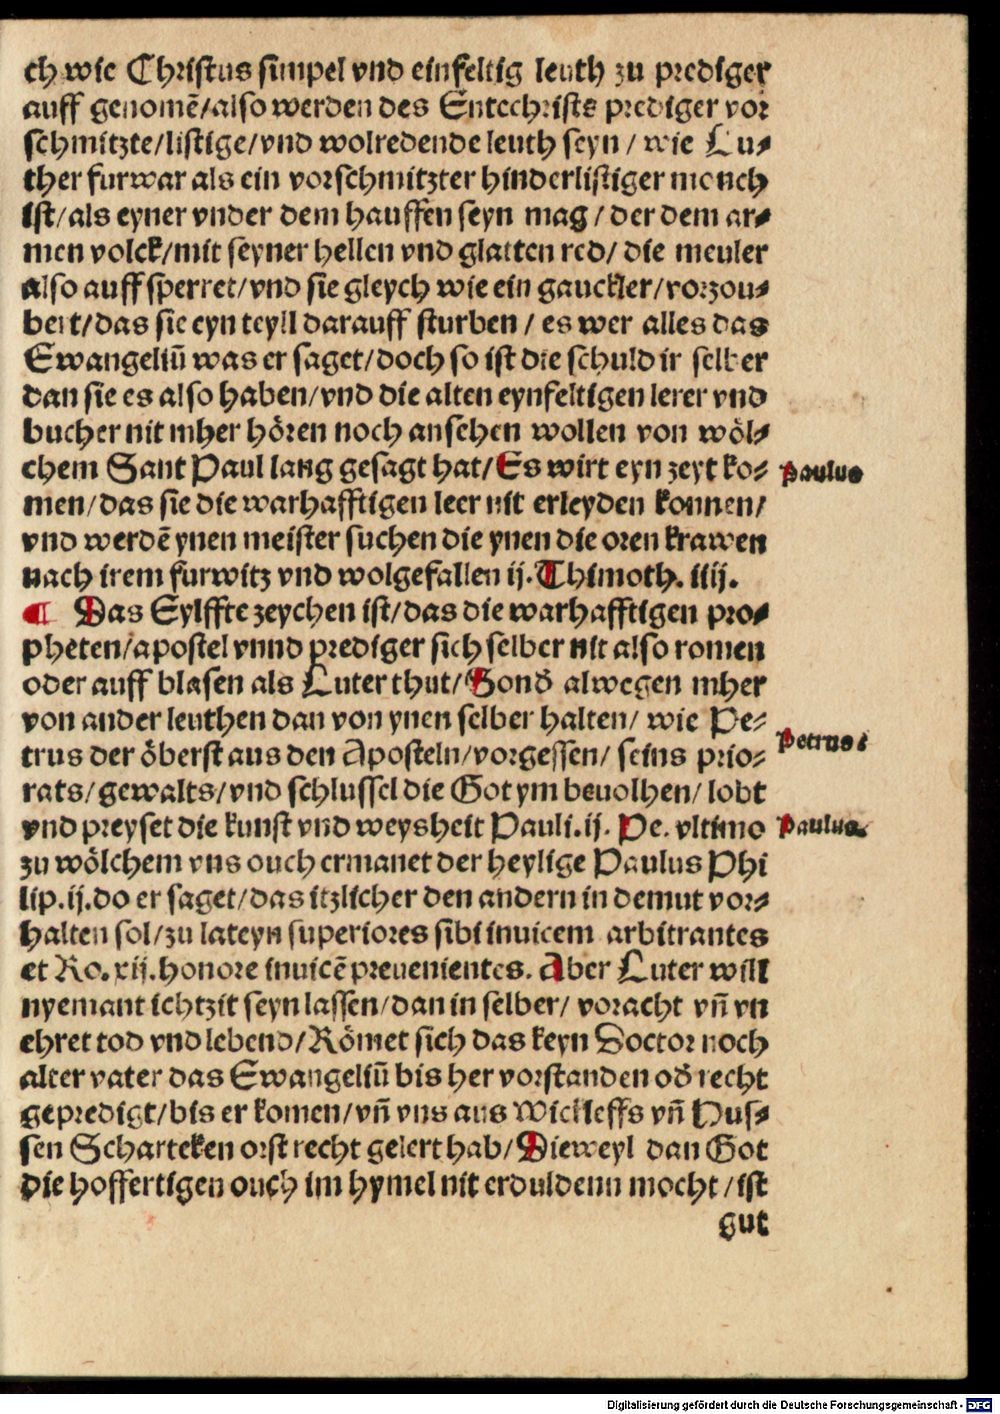 ch wie Christus simpel vnd einfeltig leuth zu prediger
auff genomē/also werden des Entechrists prediger vor
schmitzte/listige/vnd wolredende leuth seyn/ wie Lu⸗
ther furwar als ein vorschmitzter hinderlistiger monch
ist/als eyner vnder dem hauffen seyn mag/der dem ar⸗
men volck/mit seyner hellen vnd glatten red/ die meuler
also auff sperret/vnd sie gleych wie ein gauckler/vorzou⸗
bert/das sie eyn teyll darauff sturben/ es wer alles das
Ewangeliū was er saget/doch so ist die schuld ir selber
dan sie es also haben/vnd die alten eynfeltigen lerer vnd
bucher nit mher hören noch ansehen wollen von wöl⸗
chem Sant Paul lang gesagt hat/Es wirt eyn zeyt ko⸗
Paulus
men/das sie die warhafftigen leer nit erleyden konnen/
vnd werdē ynen meister suchen die ynen die oren krawen
nach irem furwitz vnd wolgefallen ij. Thimoth. iiij.
¶ Das Eylffte zeychen ist/das die warhafftigen pro⸗
pheten/apostel vnnd prediger sich selber nit also romen
oder auff blasen als Luter thut/Sond̄ alwegen mher
von ander leuthen dan von ynen selber halten/ wie Pe⸗
Petrus
trus der öberst aus den Aposteln/vorgessen/ seins prio⸗
rats/gewalts/vnd schlussel die Got ym beuolhen/ lobt
vnd preyset die kunst vnd weysheit Pauli.ij. Pe. vltimo
Paulus
zu wölchem vns ouch ermanet der heylige Paulus Phi
lip.ij.do er saget/das itzlicher den andern in demut vor⸗
halten sol/zu lateyn superiores sibi inuicem arbitrantes
et Ro.xij.honore inuicē preuenientes. Aber Luter will
nyemant ichtzit seyn lassen/dan in selber/ voracht vn̄ vn
ehret tod vnd lebend/Römet sich das keyn Doctor noch
alter vater das Ewangeliū bis her vorstanden od̄ recht
gepredigt/bis er komen/vn̄ vns aus Wickleffs vn̄ Hus⸗
sen Scharteken orst recht gelert hab/Dieweyl dan Got
die hoffertigen ouch im hymel nit erduldenn mocht/ist
gut
Digitalisierung gefördert durch die Deutsche Forschungsgemeinschaft - DFG